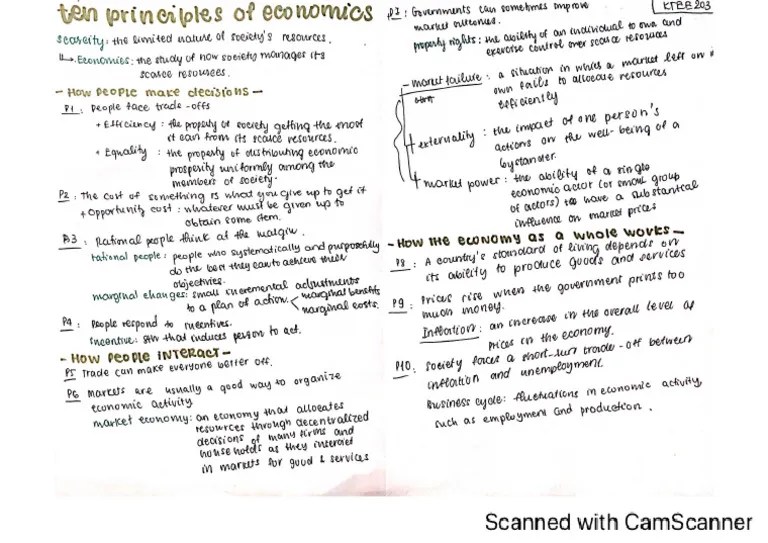 ten principles of economics
scarcity: the limited nature of society's resources.
↳ Economics: the study of how society manages its
scarce resources.
- How people make decisions -
P1: People face trade-offs
+ Efficiency: the property of society getting the most
it can from its scarce resources.
+ Equality: the property of distributing economic
prosperity uniformly among the
members of society.
P2: The cost of something is what you give up to get it
+ Opportunity cost: whatever must be given up to
obtain some item.
P3: Rational people think at the margin.
rational people: people who systematically and purposefully
do the best they can to achieve their
objectives.
marginal changes: small incremental adjustments
to a plan of action. < marginal benefits
marginal costs.
P4: People respond to incentives.
incentive: sth that induces person to act.
- How people interact -
P5 Trade can make everyone better off.
P6 Markets are usually a good way to organize
economic activity.
market economy: an economy that allocates
resources through decentralized
decisions of many firms and
households as they interact
in markets for good & services
KTEE 203
P7: Governments can sometimes improve
market outcomes.
property rights: the ability of an individual to own and
exercise control over scarce resources
- market failure: a situation in which a market left on
own fails to allocate resources
efficiently
+ externality: the impact of one person's
actions on the well-being of a
bystander.
+ market power: the ability of a single
economic actor (or small group
of actors) to have a substantial
influence on market prices
- How the economy as a whole works -
P8: A country's standard of living depends on
its ability to produce goods and services
P9: Prices rise when the government prints too
much money.
Inflation: an increase in the overall level of
prices in the economy.
P10: Society faces a short-run trade-off between
inflation and unemployment.
Business cycle: fluctuations in economic activity,
such as employment and production.
Scanned with CamScanner